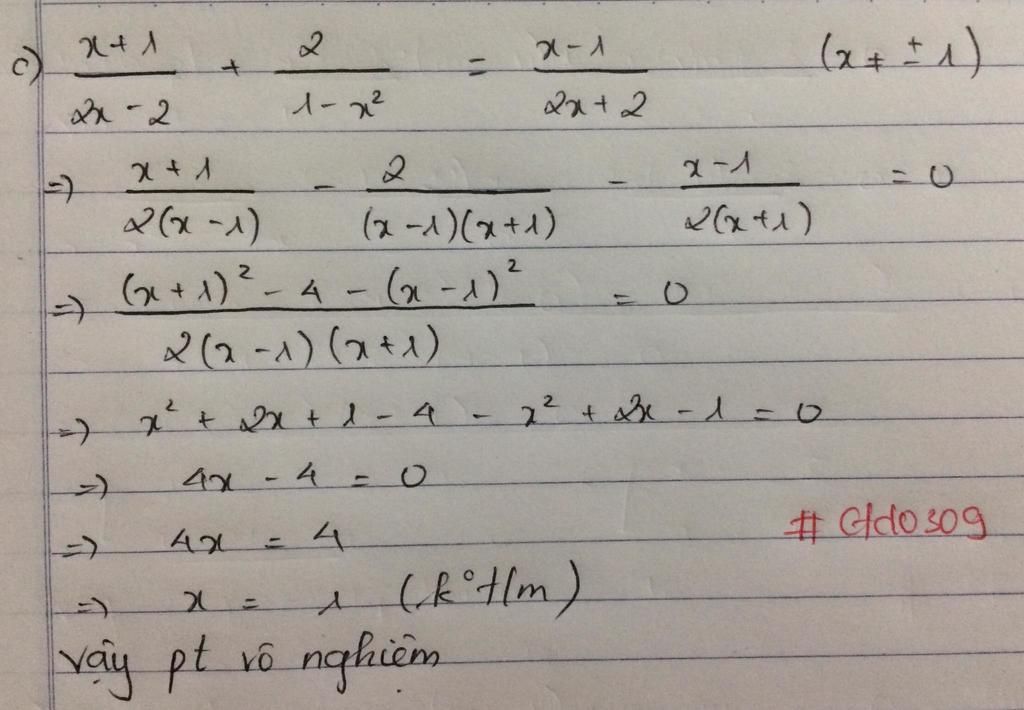 c) (x+1)/(2x-2) + 2/(1-x²) = (x-1)/(2x+2) (x ≠ ±1)
=) (x+1)/(2(x-1)) - 2/((x-1)(x+1)) - (x-1)/(2(x+1)) = 0
=) ((x+1)² - 4 - (x-1)²)/(2(x-1)(x+1)) = 0
=) x² + 2x + 1 - 4 - x² + 2x - 1 = 0
=) 4x - 4 = 0
=) 4x = 4
=) x = 1 (k° t/m)
vậy pt vô nghiệm